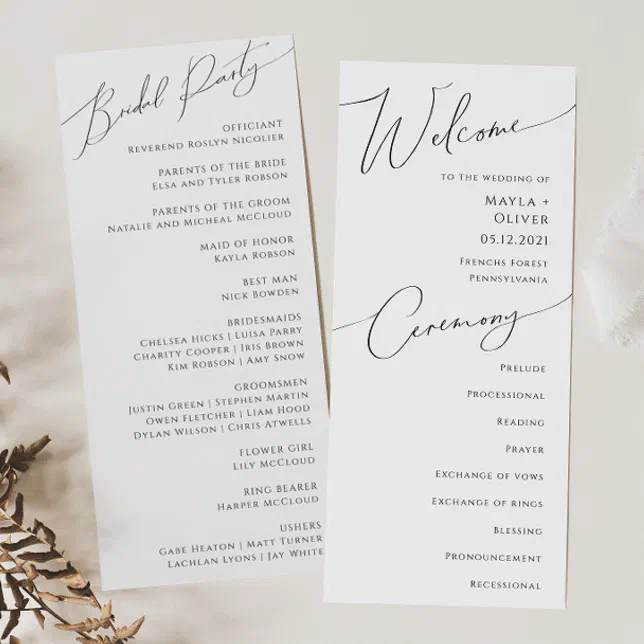 Bridal Party
OFFICIANT
REVEREND ROSLYN NICOLIER
PARENTS OF THE BRIDE
ELSA AND TYLER ROBSON
PARENTS OF THE GROOM
NATALIE AND MICHEAL MCCLOUD
MAID OF HONOR
KAYLA ROBSON
BEST MAN
NICK BOWDEN
BRIDESMAIDS
CHELSEA HICKS | LUISA PARRY
CHARITY COOPER | IRIS BROWN
KIM ROBSON | AMY SNOW
GROOMSMEN
JUSTIN GREEN | STEPHEN MARTIN
OWEN FLETCHER | LIAM HOOD
DYLAN WILSON | CHRIS ATWELLS
FLOWER GIRL
LILY MCCLOUD
RING BEARER
HARPER MCCLOUD
USHERS
GABE HEATON | MATT TURNER
LACHLAN LYONS | JAY WHITE
Welcome
TO THE WEDDING OF
MAYLA +
OLIVER
05.12.2021
FRENCHS FOREST
PENNSYLVANIA
Ceremony
PRELUDE
PROCESSIONAL
READING
PRAYER
EXCHANGE OF VOWS
EXCHANGE OF RINGS
BLESSING
PRONOUNCEMENT
RECESSIONAL